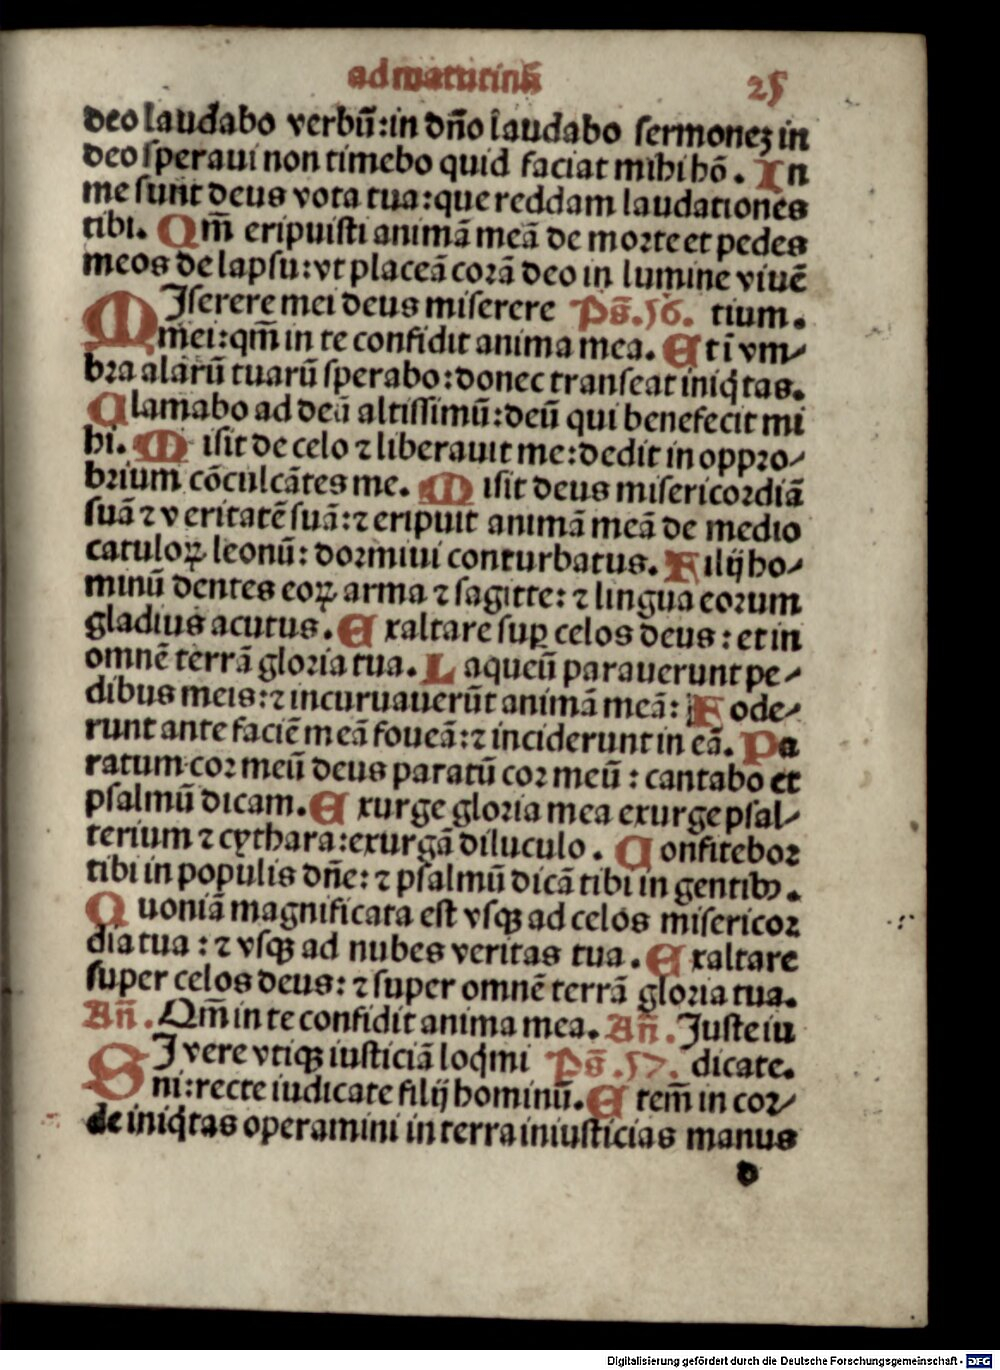 ad matutinū 25
deo laudabo verbū: in dn̄o laudabo sermoneꝫ in
deo speraui non timebo quid faciat mihi hō. In
me sunt deus vota tua: que reddam laudationes
tibi. Qm̄ eripuisti animā meā de morte et pedes
meos de lapsu: vt placeā corā deo in lumine viuē
MIserere mei deus miserere Ps̄.56. tium.
mei: qm̄ in te confidit anima mea. Et ī vm-
bra alarū tuarū sperabo: donec transeat iniq̇tas.
Clamabo ad deū altissimū: deū qui benefecit mi
hi. Misit de celo ⁊ liberauit me: dedit in oppro-
brium cōculcātes me. Misit deus misericordiā
suā ⁊ veritatē suā: ⁊ eripuit animā meā de medio
catuloꝝ leonū: dormiui conturbatus. Filij ho-
minū dentes eoꝝ arma ⁊ sagitte: ⁊ lingua eorum
gladius acutus. Exaltare suꝑ celos deus: et in
omnē terrā gloria tua. Laqueū parauerunt pe-
dibus meis: ⁊ incuruauerūt animā meā: Fode-
runt ante faciē meā foueā: ⁊ inciderunt in eā. Pa
ratum cor meū deus paratū cor meū: cantabo et
psalmū dicam. Exurge gloria mea exurge psal-
terium ⁊ cythara: exurgā diluculo. Confitebor
tibi in populis dn̄e: ⁊ psalmū dicā tibi in gentibꝫ.
Quoniā magnificata est vsqꝫ ad celos misericor
dia tua: ⁊ vsqꝫ ad nubes veritas tua. Exaltare
super celos deus: ⁊ super omnē terrā gloria tua.
An̄. Qm̄ in te confidit anima mea. An̄. Juste iu
SI vere vtiqꝫ iusticiā loq̇mi Ps̄.57. dicate.
ni: recte iudicate filij hominū. Etem̄ in cor-
de iniq̇tas operamini in terra iniusticias manus
d
Digitalisierung gefördert durch die Deutsche Forschungsgemeinschaft - DFG